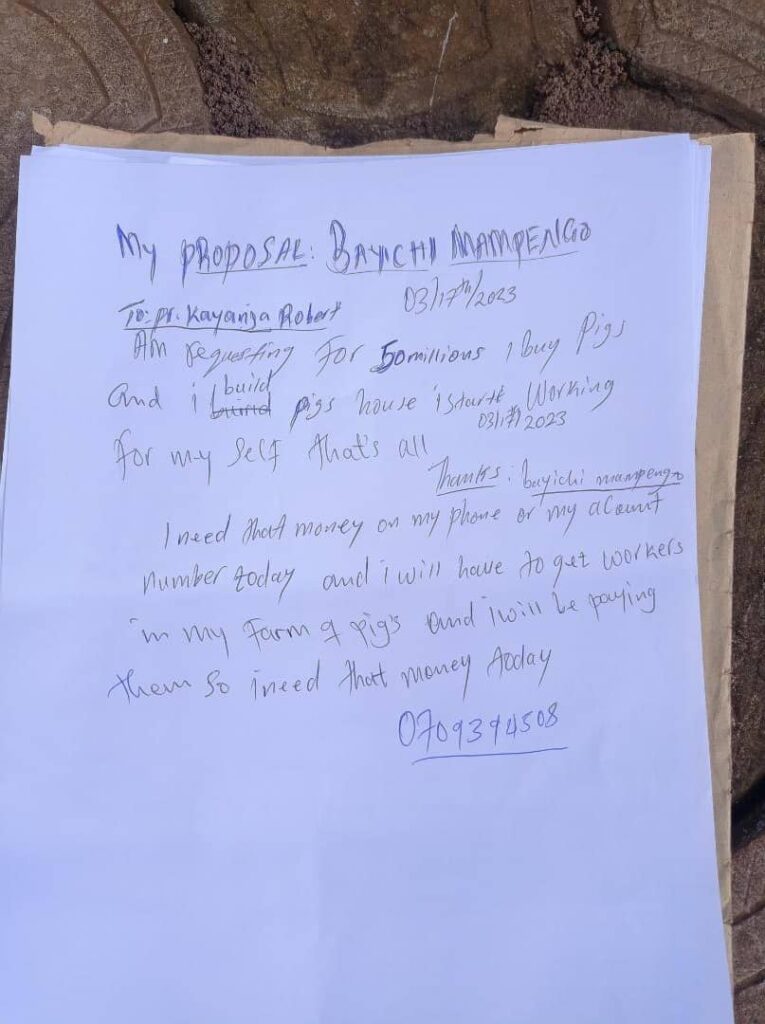 My PROPOSAL: BAYICHI MAMPENGO
03/17th/2023
To: pr. Kayanja Robert
AM requesting for 50millions i buy Pigs
And i build pigs house i start Working
03/17th/2023
for my self that's all
Thanks: bayichi mampengo
I need that money on my phone or my acount
number today and i will have to get workers
in my farm of pigs and i will be paying
them so i need that money today
0709394508